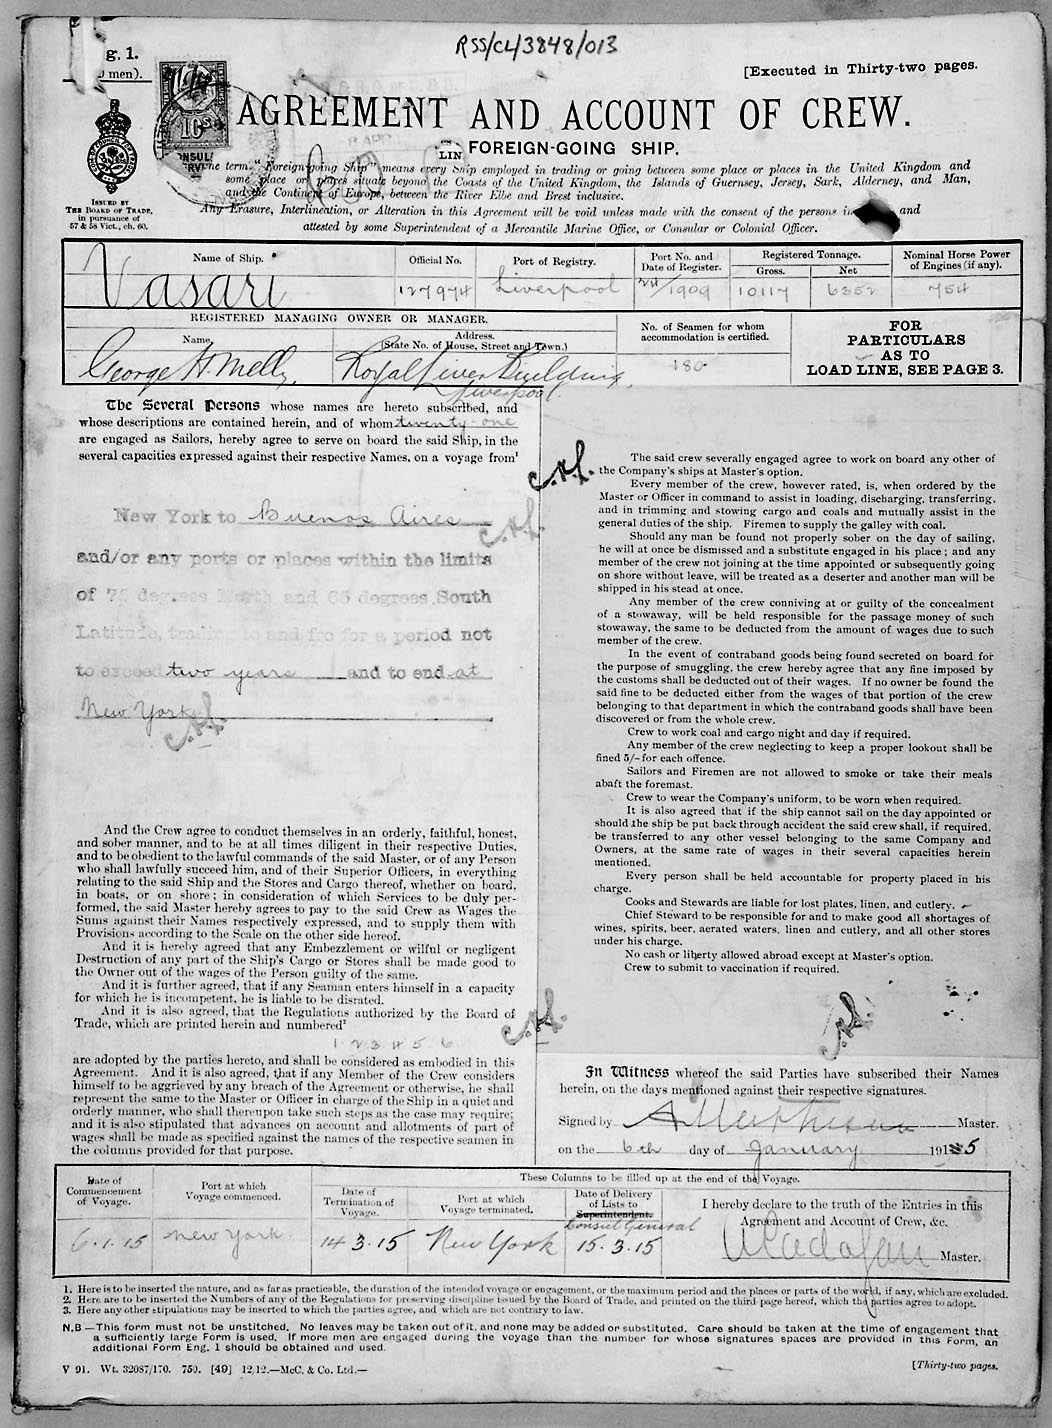 RSS/CL/3848/013
g. 1.
men).
[Executed in Thirty-two pages.
AGREEMENT AND ACCOUNT OF CREW.
FOREIGN-GOING SHIP.
ISSUED BY
THE BOARD OF TRADE,
in pursuance of
57 & 58 Vict., ch. 60.
10s
term "Foreign-going Ship" means every Ship employed in trading or going between some place or places in the United Kingdom and
some place or places situate beyond the Coasts of the United Kingdom, the Islands of Guernsey, Jersey, Sark, Alderney, and Man,
and the Continent of Europe, between the River Elbe and Brest inclusive.
Any Erasure, Interlineation, or Alteration in this Agreement will be void unless made with the consent of the persons in and
attested by some Superintendent of a Mercantile Marine Office, or Consular or Colonial Officer.
Name of Ship. Official No. Port of Registry. Port No. and Date of Register. Registered Tonnage. Gross. Net Nominal Horse Power of Engines (if any).
Vasari 127974 Liverpool 24/1909 10117 6352 754
REGISTERED MANAGING OWNER OR MANAGER.
Name. Address. (State No. of House, Street and Town.)
No. of Seamen for whom accommodation is certified.
George H. Melly. Royal Liver Building, Liverpool. 180
FOR
PARTICULARS
AS TO
LOAD LINE, SEE PAGE 3.
The Several Persons whose names are hereto subscribed, and
whose descriptions are contained herein, and of whom twenty-one
are engaged as Sailors, hereby agree to serve on board the said Ship, in the
several capacities expressed against their respective Names, on a voyage from¹
New York to Buenos Aires
and/or any ports or places within the limits
of 75 degrees North and 66 degrees South
Latitude, trading to and fro for a period not
to exceed two years and to end at
New York
And the Crew agree to conduct themselves in an orderly, faithful, honest,
and sober manner, and to be at all times diligent in their respective Duties,
and to be obedient to the lawful commands of the said Master, or of any Person
who shall lawfully succeed him, and of their Superior Officers, in everything
relating to the said Ship and the Stores and Cargo thereof, whether on board,
in boats, or on shore; in consideration of which Services to be duly per-
formed, the said Master hereby agrees to pay to the said Crew as Wages the
Sums against their Names respectively expressed, and to supply them with
Provisions according to the Scale on the other side hereof.
And it is hereby agreed that any Embezzlement or wilful or negligent
Destruction of any part of the Ship's Cargo or Stores shall be made good to
the Owner out of the wages of the Person guilty of the same.
And it is further agreed, that if any Seaman enters himself in a capacity
for which he is incompetent, he is liable to be disrated.
And it is also agreed, that the Regulations authorized by the Board of
Trade, which are printed herein and numbered²
1 2 3 4 5 6
are adopted by the parties hereto, and shall be considered as embodied in this
Agreement. And it is also agreed, that if any Member of the Crew considers
himself to be aggrieved by any breach of the Agreement or otherwise, he shall
represent the same to the Master or Officer in charge of the Ship in a quiet and
orderly manner, who shall thereupon take such steps as the case may require;
and it is also stipulated that advances on account and allotments of part of
wages shall be made as specified against the names of the respective seamen in
the columns provided for that purpose.
The said crew severally engaged agree to work on board any other of
the Company's ships at Master's option.
Every member of the crew, however rated, is, when ordered by the
Master or Officer in command to assist in loading, discharging, transferring,
and in trimming and stowing cargo and coals and mutually assist in the
general duties of the ship. Firemen to supply the galley with coal.
Should any man be found not properly sober on the day of sailing,
he will at once be dismissed and a substitute engaged in his place; and any
member of the crew not joining at the time appointed or subsequently going
on shore without leave, will be treated as a deserter and another man will be
shipped in his stead at once.
Any member of the crew conniving at or guilty of the concealment
of a stowaway, will be held responsible for the passage money of such
stowaway, the same to be deducted from the amount of wages due to such
member of the crew.
In the event of contraband goods being found secreted on board for
the purpose of smuggling, the crew hereby agree that any fine imposed by
the customs shall be deducted out of their wages. If no owner be found the
said fine to be deducted either from the wages of that portion of the crew
belonging to that department in which the contraband goods shall have been
discovered or from the whole crew.
Crew to work coal and cargo night and day if required.
Any member of the crew neglecting to keep a proper lookout shall be
fined 5/- for each offence.
Sailors and Firemen are not allowed to smoke or take their meals
abaft the foremast.
Crew to wear the Company's uniform, to be worn when required.
It is also agreed that if the ship cannot sail on the day appointed or
should the ship be put back through accident the said crew shall, if required,
be transferred to any other vessel belonging to the same Company and
Owners, at the same rate of wages in their several capacities herein
mentioned.
Every person shall be held accountable for property placed in his
charge.
Cooks and Stewards are liable for lost plates, linen, and cutlery.
Chief Steward to be responsible for and to make good all shortages of
wines, spirits, beer, aerated waters, linen and cutlery, and all other stores
under his charge.
No cash or liberty allowed abroad except at Master's option.
Crew to submit to vaccination if required.
In Witness whereof the said Parties have subscribed their Names
herein, on the days mentioned against their respective signatures.
Signed by Master.
on the 6th day of January 1915
These Columns to be filled up at the end of the Voyage.
Date of Commencement of Voyage. Port at which Voyage commenced. Date of Termination of Voyage. Port at which Voyage terminated. Date of Delivery of Lists to Superintendent. Consul General
6.1.15 New York 14 3.15 New York 15.3.15
I hereby declare to the truth of the Entries in this
Agreement and Account of Crew, &c.
Master.
1. Here is to be inserted the nature, and as far as practicable, the duration of the intended voyage or engagement, or the maximum period and the places or parts of the world, if any, which are excluded.
2. Here are to be inserted the Numbers of any of the Regulations for preserving discipline issued by the Board of Trade, and printed on the third page hereof, which the parties agree to adopt.
3. Here any other stipulations may be inserted to which the parties agree, and which are not contrary to law.
N.B—This form must not be unstitched. No leaves may be taken out of it, and none may be added or substituted. Care should be taken at the time of engagement that
a sufficiently large Form is used. If more men are engaged during the voyage than the number for whose signatures spaces are provided in this Form, an
additional Form Eng. 1 should be obtained and used.
V 91. Wt. 32087/170. 750. [49] 12/12.—McC. & Co. Ltd.—
[Thirty-two pages.